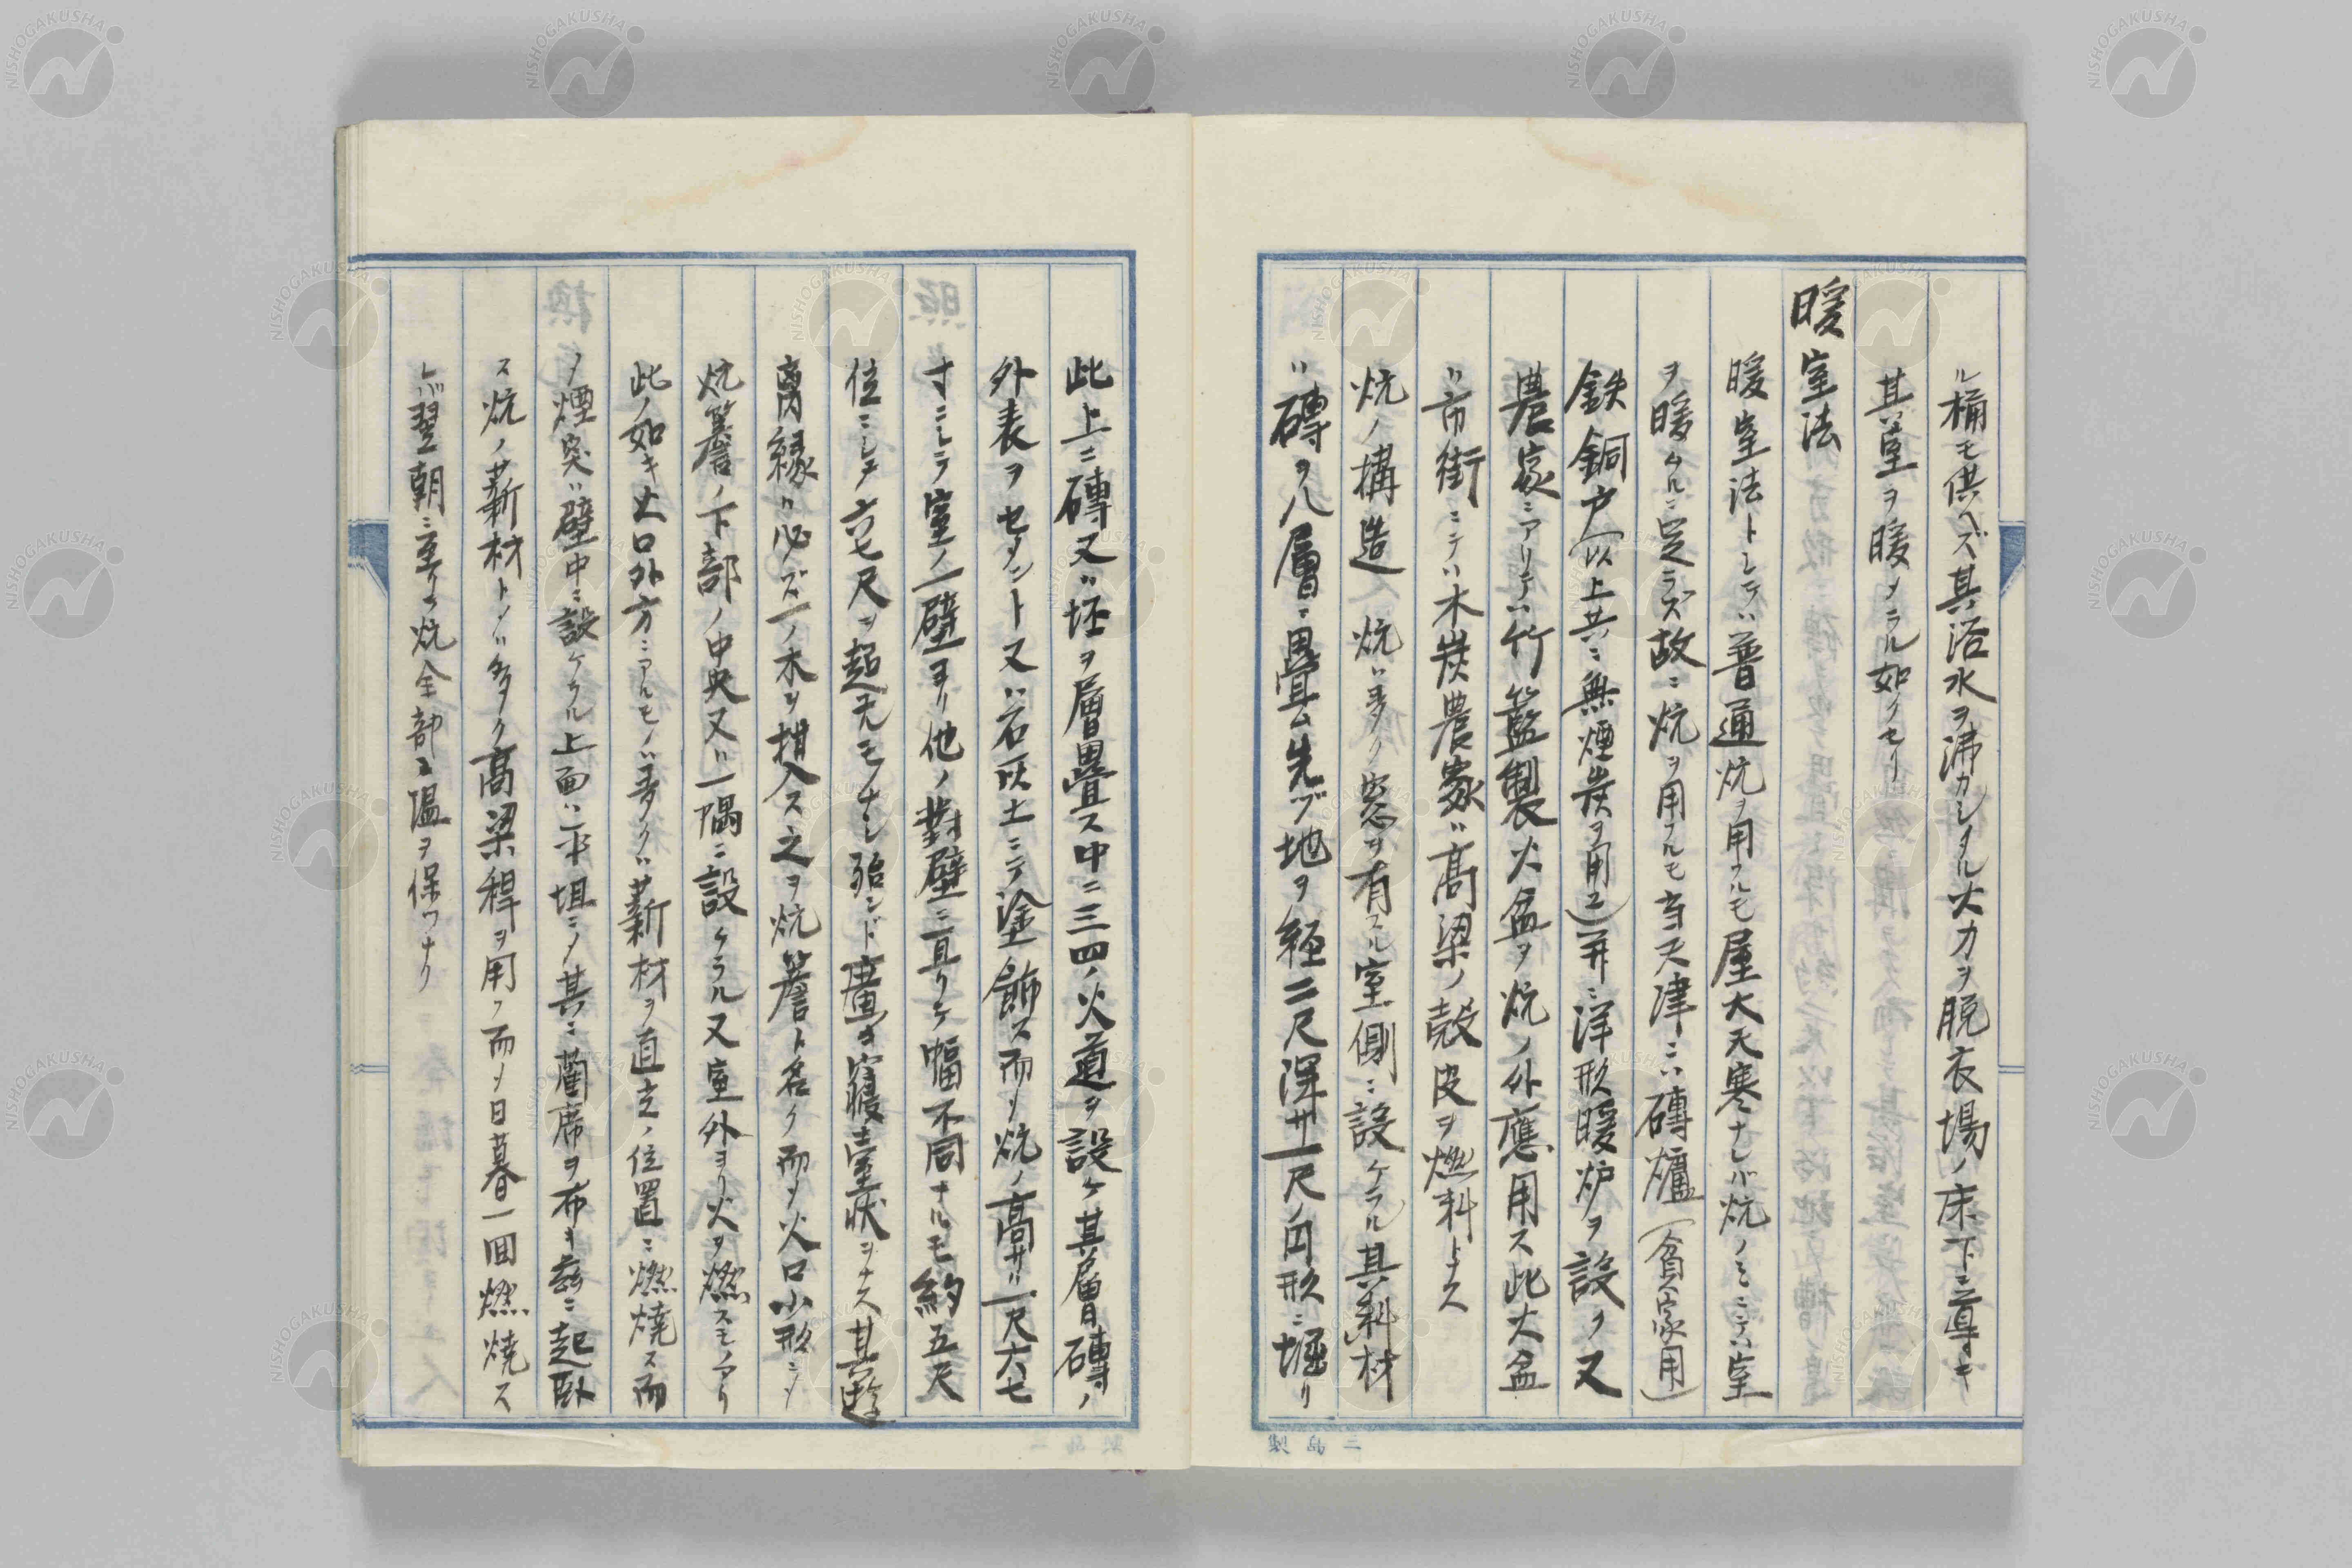 ル桶モ供ヘズ其浴水ヲ沸カシタル火力ヲ脱衣場ノ床下ニ導キ
其室ヲ暖メラル如クセリ
暖室法
暖室法トシテハ普通炕ヲ用フルモ屋大天寒ナレバ炕ノミニテハ室
ヲ暖ムルニ足ラズ故ニ炕ヲ用フルモ当天津ニハ磚爐（貧家用）
鉄銅戸（以上共ニ無煙炭ヲ用ユ）并ニ洋形暖炉ヲ設ク又
農家ニアリテハ竹籃製火盆ヲ炕ノ外應用ス此火盆
ハ市街ニテハ木炭農家ハ高梁ノ殻皮ヲ燃料トナス
炕ノ構造 炕ハ多ク窓ヲ有スル室側ニ設ケラル其料材
ハ磚ヲ八層ニ畳ム先ヅ地ヲ経二尺深サ一尺ノ円形ニ堀リ
此上ニ磚又ハ坯ヲ層畳ス中ニ三四ノ火道ヲ設ケ其層磚ノ
外表ヲセメント又ハ石灰土ニテ塗飾ス而シテ炕ノ高サハ一尺六七
寸ニシテ室ノ一壁ヨリ他ノ對壁ニ亘リケ幅不同ナルモ約五尺
位ニシテ六七尺ヲ超元モノナシ殆ンド廣キ寝臺状ヲナス其邊
离縁ハ必ズ一ノ木ヲ揷入ス之ヲ炕簷ト名ク而シテ火口小形ニシテ
炕簷ノ下部ノ中央又ハ一隅ニ設ケラル又室外ヨリ火ヲ燃スモノアリ
此ノ如キ火口外方ニアルモノハ多クハ薪材ヲ直立ノ位置ニ燃焼ス而
ノ煙突ハ壁中ニ設ケラル上面ハ平坦ニシテ其ニ藺席ヲ布キ茲ニ起臥
ス炕ノ薪材トノハ多ク高梁稈ヲ用フ而シテ日暮一回燃焼ス
レバ翌朝ニ至ルモ炕全部ニ温ヲ保ツナリ